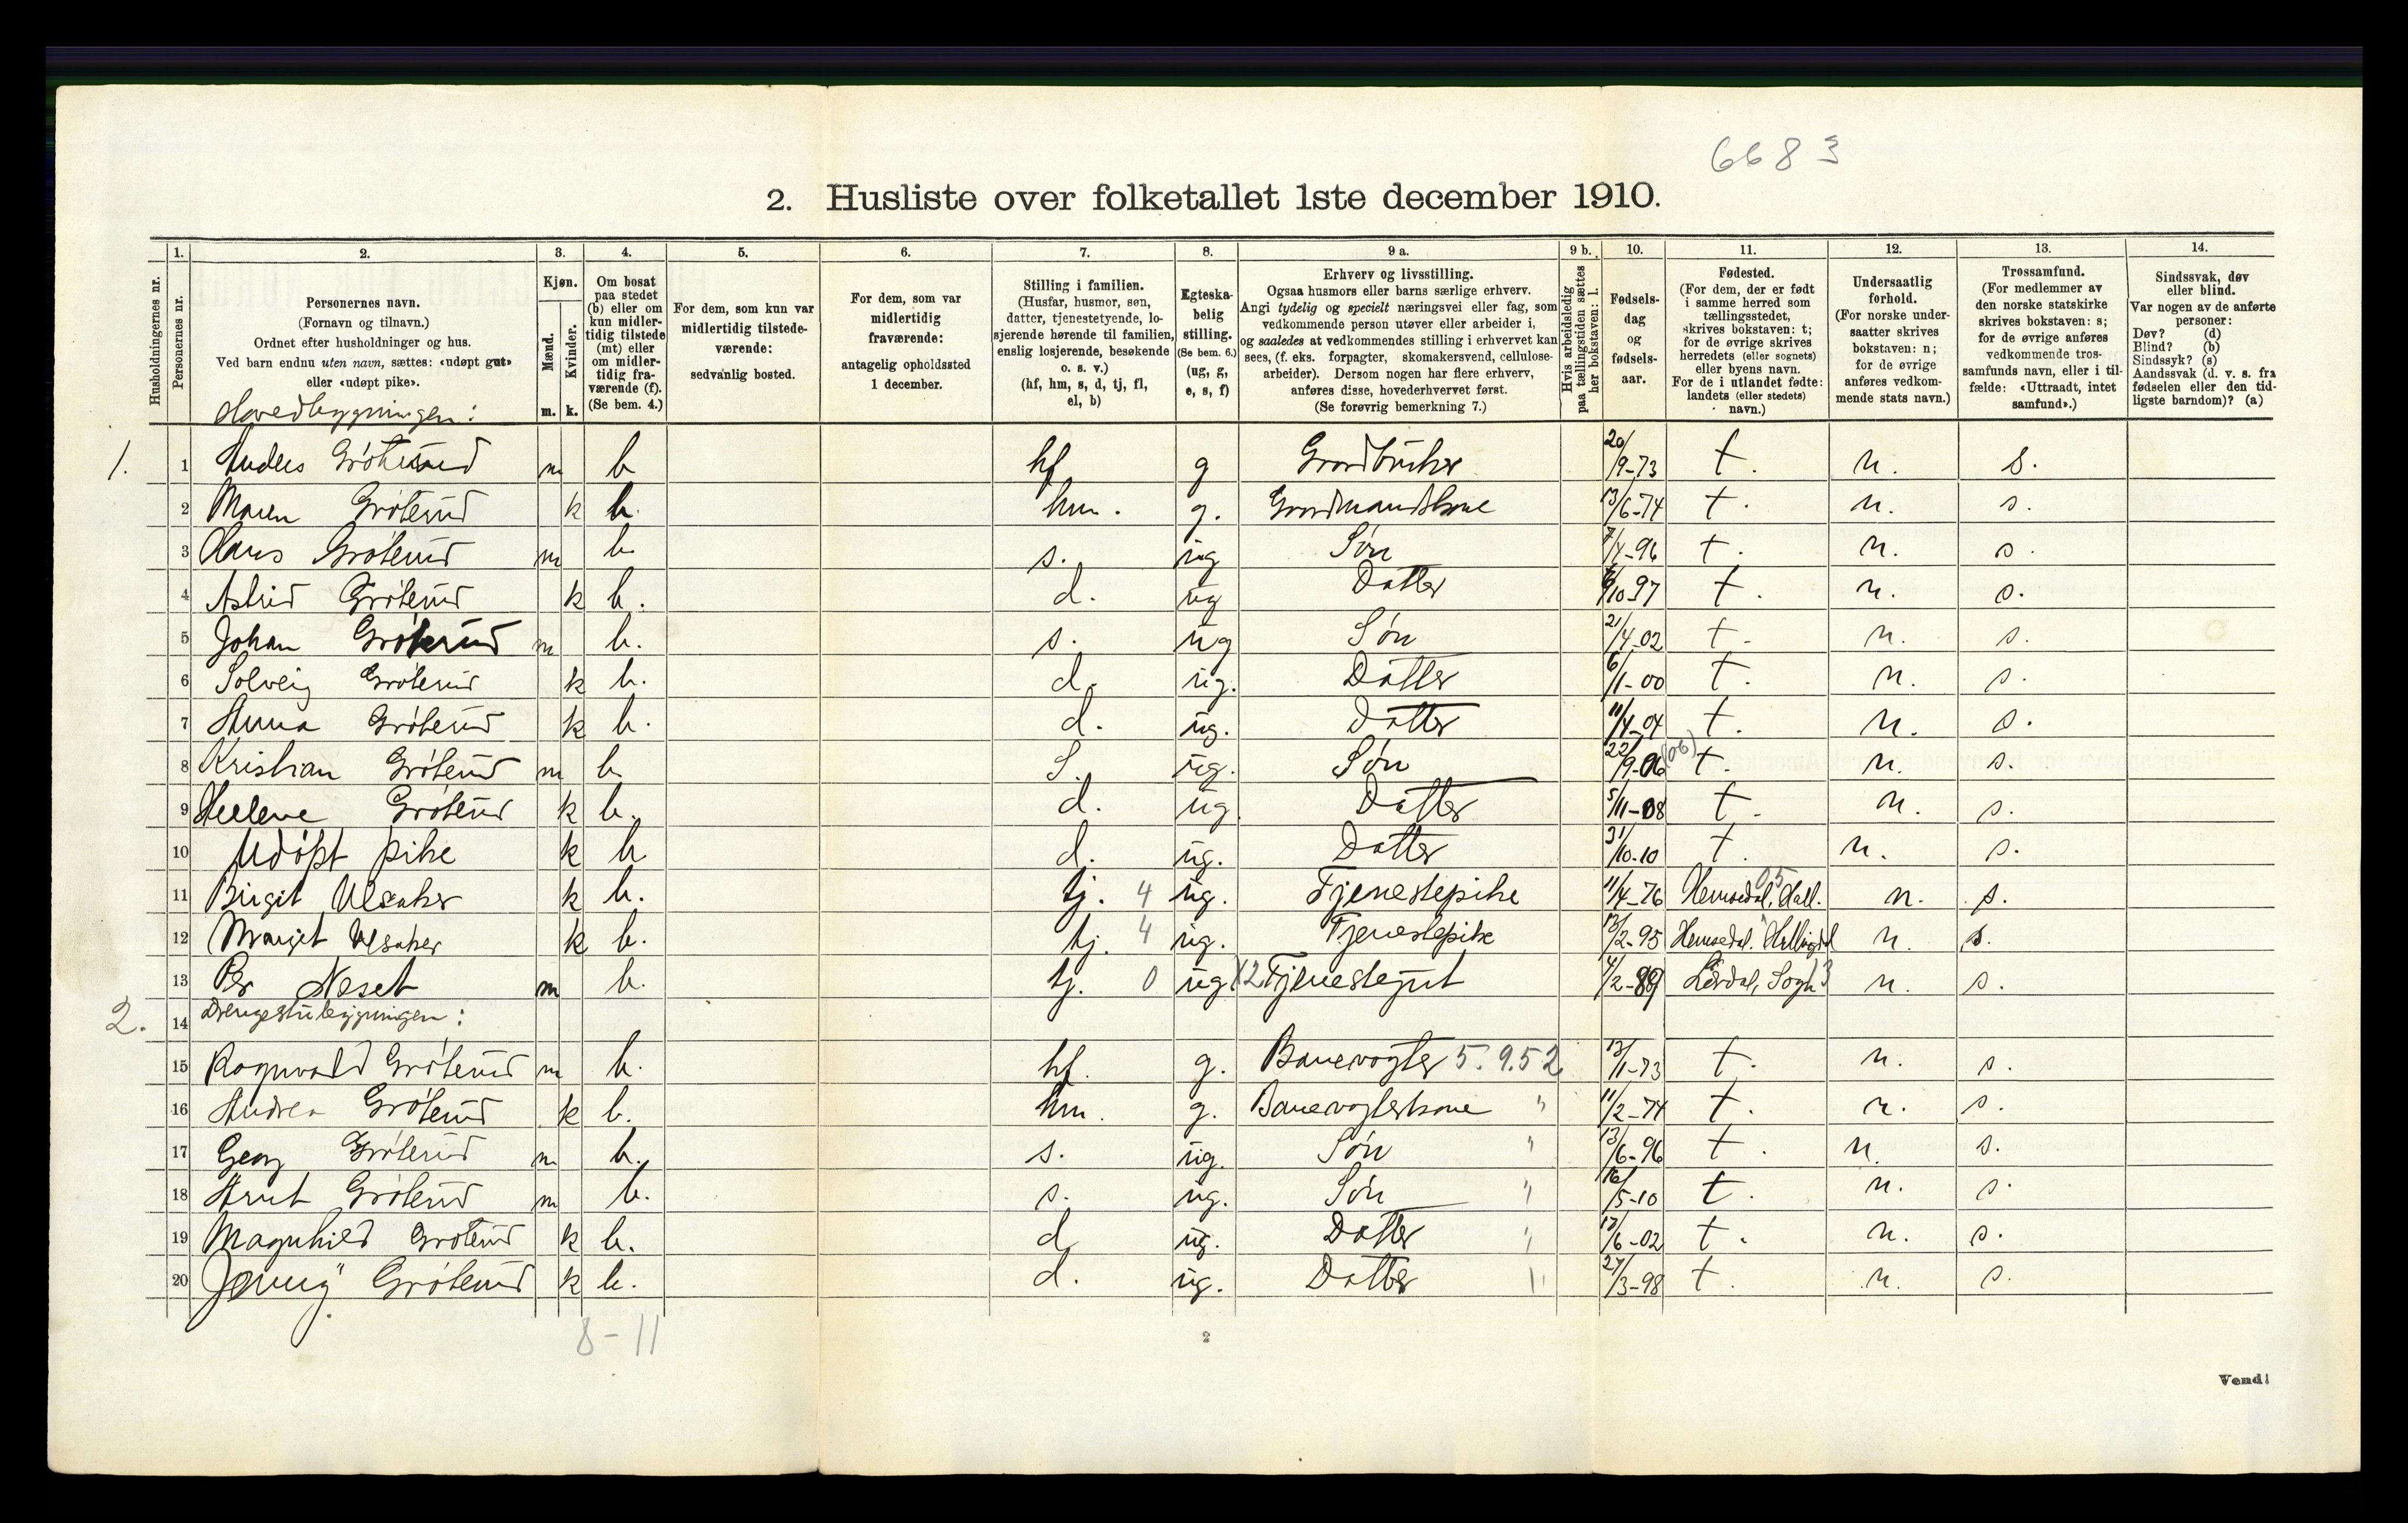 6683
2. Husliste over folketallet 1ste december 1910.
Husholdningernes nr.
1. Personernes nr.
2. Personernes navn. (Fornavn og tilnavn.) Ordnet efter husholdninger og hus. Ved barn endnu uten navn, sættes: «udøpt gut» eller «udøpt pike».
3. Kjøn. Mænd. m. Kvinder. k.
4. Om bosat paa stedet (b) eller om kun midler-tidig tilstede (mt) eller om midler-tidig fra-værende (f). (Se bem. 4.)
5. For dem, som kun var midlertidig tilstede-værende: sedvanlig bosted.
6. For dem, som var midlertidig fraværende: antagelig opholdssted 1 december.
7. Stilling i familien. (Husfar, husmor, søn, datter, tjenestetyende, lo-sjerende hørende til familien, enslig losjerende, besøkende o. s. v.) (hf, hm, s, d, tj, fl, el, b)
8. Egteska-belig stilling. (Se bem. 6.) (ug, g, e, s, f)
9 a. Erhverv og livsstilling. Ogsaa husmors eller barns særlige erhverv. Angi tydelig og specielt næringsvei eller fag, som vedkommende person utøver eller arbeider i, og saaledes at vedkommendes stilling i erhvervet kan sees, (f. eks. forpagter, skomakersvend, cellulose-arbeider). Dersom nogen har flere erhverv, anføres disse, hovederhvervet først. (Se forøvrig bemerkning 7.)
9 b. Hvis arbeidsledig paa tællingstiden sættes her bokstaven: l.
10. Fødsels-dag og fødsels-aar.
11. Fødested. (For dem, der er født i samme herred som tællingsstedet, skrives bokstaven: t; for de øvrige skrives herredets (eller sognets) eller byens navn. For de i utlandet fødte: landets (eller stedets) navn.)
12. Undersaatlig forhold. (For norske under-saatter skrives bokstaven: n; for de øvrige anføres vedkom-mende stats navn.)
13. Trossamfund. (For medlemmer av den norske statskirke skrives bokstaven: s; for de øvrige anføres vedkommende tros-samfunds navn, eller i til-fælde: «Uttraadt, intet samfund».)
14. Sindssvak, døv eller blind. Var nogen av de anførte personer: Døv? (d) Blind? (b) Sindssyk? (s) Aandssvak (d. v. s. fra fødselen eller den tid-ligste barndom)? (a)
Hovedbygningen:
1. 1 Anders Gröterud m b hf g Gaardbruker 20/9-73 t. n. s.
2 Maren Gröterud k b. hm. g. Gaardmandskone 13/6-74 t. n. s.
3 Hans Gröterud m b. s. ug Søn 7/4-96 t. n. s.
4 Astrid Gröterud k b. d. ug Datter /10-97 t. n. s.
5 Johan Gröterud m b. s. ug Søn 21/4-02 t. n. s.
6 Solveig Gröterud k b. d. ug. Datter 6/1-00 t. n. s.
7 Anna Gröterud k b. d. ug. Datter 11/4-04 t. n. s.
8 Kristian Gröterud m b. S. ug. Søn 22/9-06 (06) t. n. s.
9 Helene Gröterud k b. d. ug. Datter 5/11-08 t. n. s.
10 Udøpt pike k b d. ug. Datter 31/10-10 t. n. s.
11 Birgit Ulsaker k b. tj. 4 ug. Tjenestepike 11/4-76 Hemsedal, Hall. 05 n. s.
12 Margit Ulsaker k b. tj. 4 ug. Tjenestepike 13/2-95 Hemsedal, Hallingdal n. s.
13 Per Næset m b. tj. 0 ug. X2 Tjenestegut 4/2-89 Lærdal, Sogn n. s.
2. 14 Drengestubygningen:
15 Ragnvald Gröterud m b. hf. g. Banevogter 5.9.52 13/1-73 t. n. s.
16 Andrea Gröterud k b. hm. g. Banevogterkone " 11/2-74 t. n. s.
17 Georg Gröterud m b. s. ug. Søn " 13/6-96 t. n. s.
18 Arnt Gröterud m b. s. ug. Søn " 16/5-10 t. n. s.
19 Magnhild Gröterud k b. d ug. Datter " 17/6-02 t. n. s.
20 Jenny Gröterud k b. d. ug. Datter " 27/3-98 t. n. s.
8-11
2
Vend!